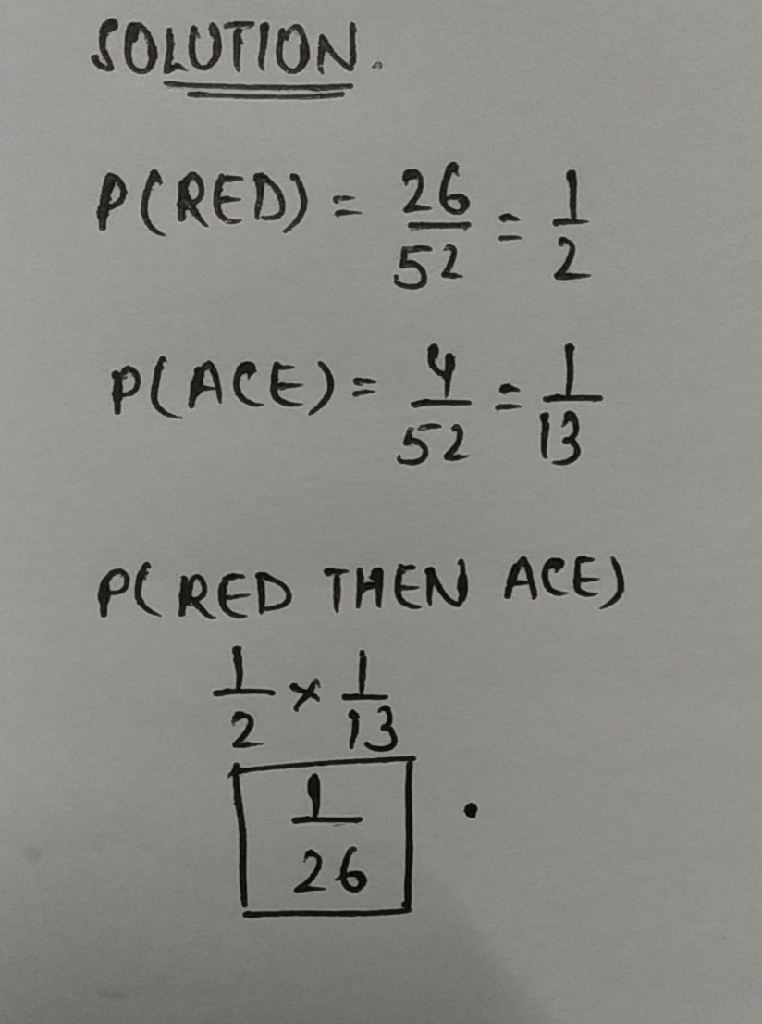 SOLUTION.
P(RED) = 26/52 = 1/2
P(ACE) = 4/52 = 1/13
P(RED THEN ACE)
1/2 × 1/13
1/26 .